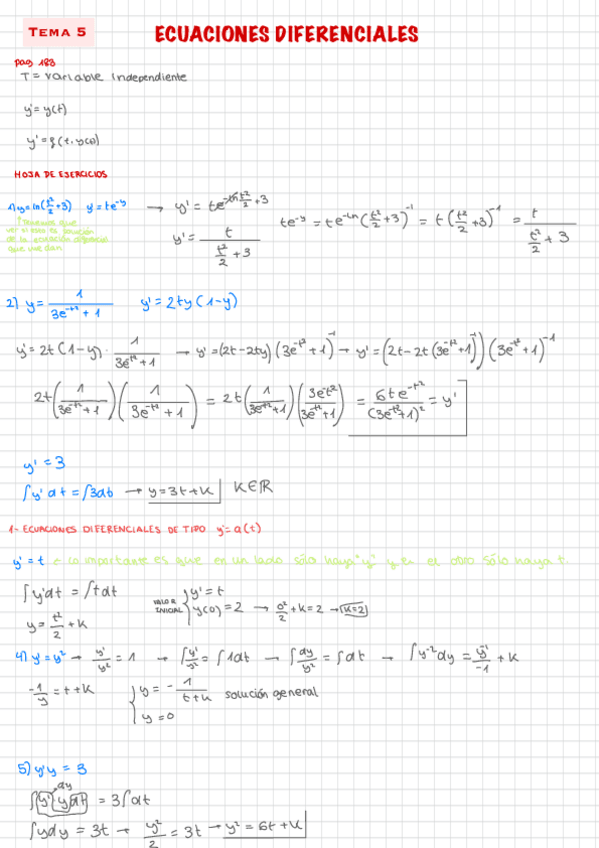 TEMA 5
ECUACIONES DIFERENCIALES
pag 183
T = variable independiente
y = y(t)
y' = f(t, y(t))
HOJA DE EJERCICIOS
1) y = ln(t²/2 + 3) y' = te^-y → y' = te^-ln t²/2 + 3
te^-y = te^-ln(t²/2 + 3) = t(t²/2 + 3)^-1 = t / (t²/2 + 3)
Tenemos que
ver si esto es solución
de la ecuación diferencial
que me dan
y' = t / (t²/2 + 3)
2) y = 1 / (3e^-t² + 1) y' = 2ty(1-y)
y' = 2t(1-y) · 1 / (3e^-t² + 1) → y' = (2t-2ty)(3e^-t² + 1)^-1 → y' = (2t - 2t(3e^-t² + 1)^-1)(3e^-t² + 1)^-1
2t(1 / (3e^-t² + 1))(1 / (3e^-t² + 1)) = 2t(1 / (3e^-t² + 1))(3e^-t² / (3e^-t² + 1)) = 6te^-t² / (3e^-t² + 1)² = y'
y' = 3
∫y' dt = ∫3dt → y = 3t + K K∈ℝ
1- ECUACIONES DIFERENCIALES DE TIPO y' = a(t)
y' = t ← lo importante es que en un lado sólo haya "y" y en el otro sólo haya t.
∫y'dt = ∫tdt
VALOR INICIAL { y' = t
y(0) = 2 → 0²/2 + K = 2 → K=2
y = t²/2 + K
4) y' = y² → y'/y² = 1 → ∫y'/y² = ∫1dt → ∫dy/y² = ∫dt → ∫y^-2 dy = y^-1/-1 + K
-1/y = t + K { y = - 1 / (t + K) solución general
y = 0
5) y'y = 3
dy
∫y' y dt = 3∫dt
∫ydy = 3t → y²/2 = 3t → y² = 6t + K